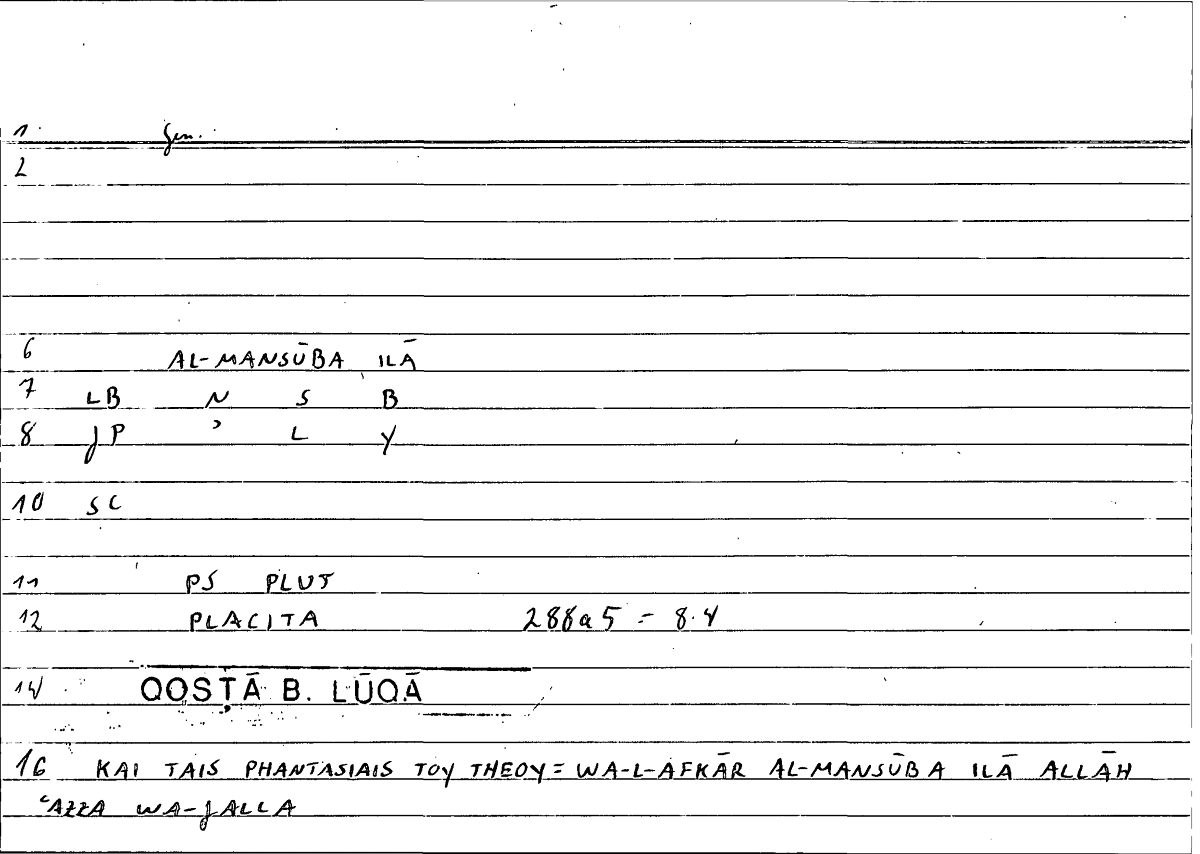 1 Gen.
2
6 AL-MANSŪBA ILĀ
7 LB N S B
8 JP ʾ L Y
10 SC
11 PS PLUT
12 PLACITA 288a5 = 8.4
14 QOSṬĀ B. LŪQĀ
16 KAI TAIS PHANTASIAIS TOY THEOY = WA-L-AFKĀR AL-MANSŪBA ILĀ ALLĀH
ʿAZZA WA-JALLA